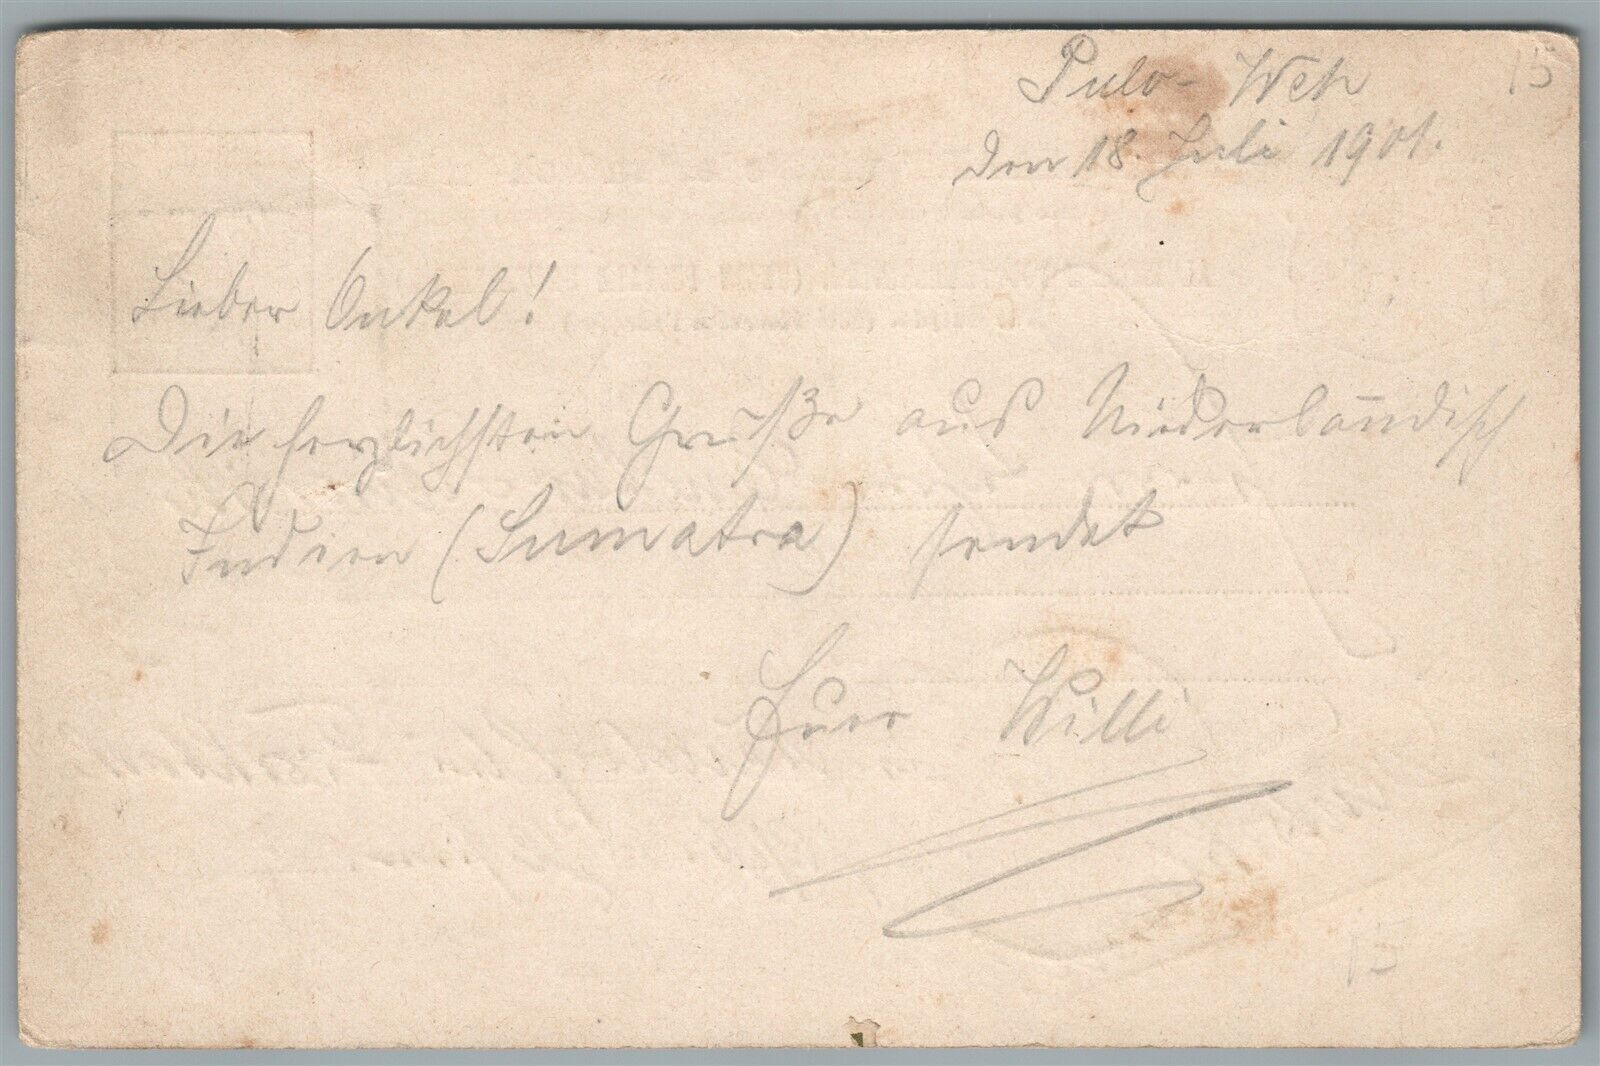 15
Pulo-Weh
den 18. Juli 1901.
Lieber Onkel!
Die herzlichsten Grüße aus Niederländisch
Indien (Sumatra) sendet
Euer Willi
15